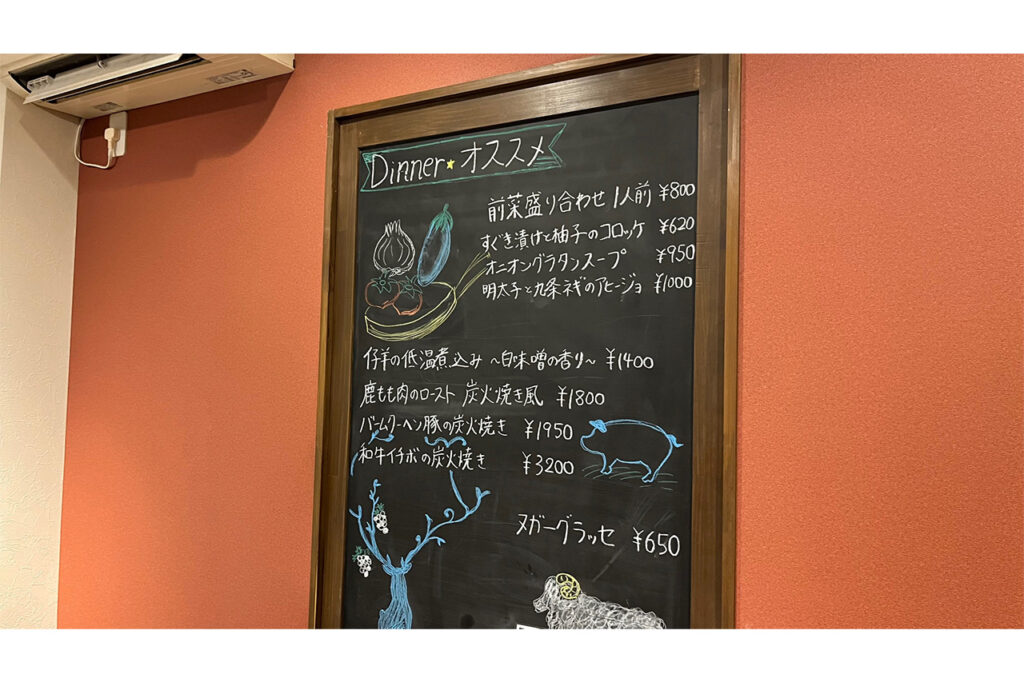 Dinner★オススメ
前菜盛り合わせ 1人前 ¥800
すぐき漬けと柚子のコロッケ ¥620
オニオングラタンスープ ¥950
明太子と九条ネギのアヒージョ ¥1000
仔羊の低温煮込み ～白味噌の香り～ ¥1400
鹿もも肉のロースト 炭火焼き風 ¥1800
バームクーヘン豚の炭火焼き ¥1950
和牛イチボの炭火焼き ¥3200
ヌガーグラッセ ¥650